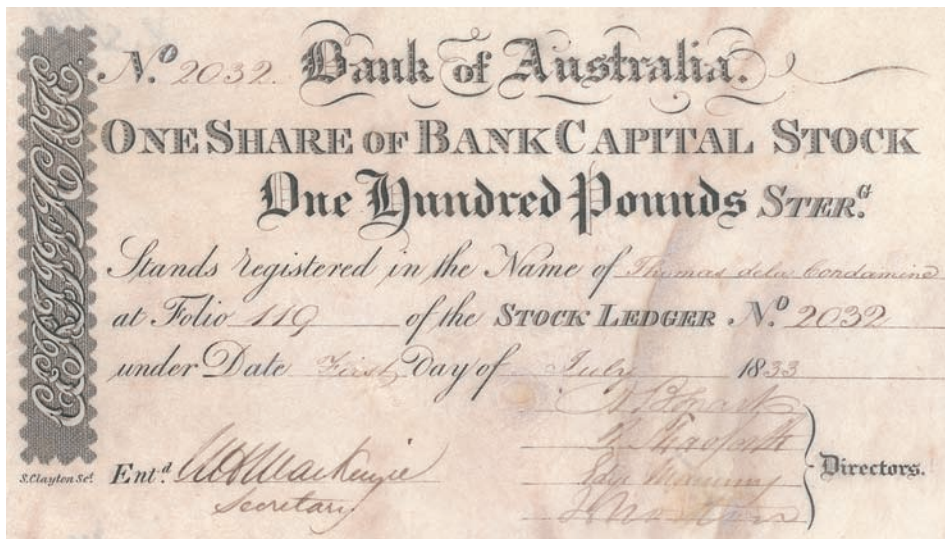 CERTIFICATE
No. 2032. Bank of Australia.
ONE SHARE OF BANK CAPITAL STOCK
One Hundred Pounds STER.G
Stands registered in the Name of Thomas de la Condamine
at Folio 119 of the STOCK LEDGER No. 2032
under Date First Day of July 1833
Directors.
S. Clayton Sct. Ent.d W H Mackenzie
Secretary